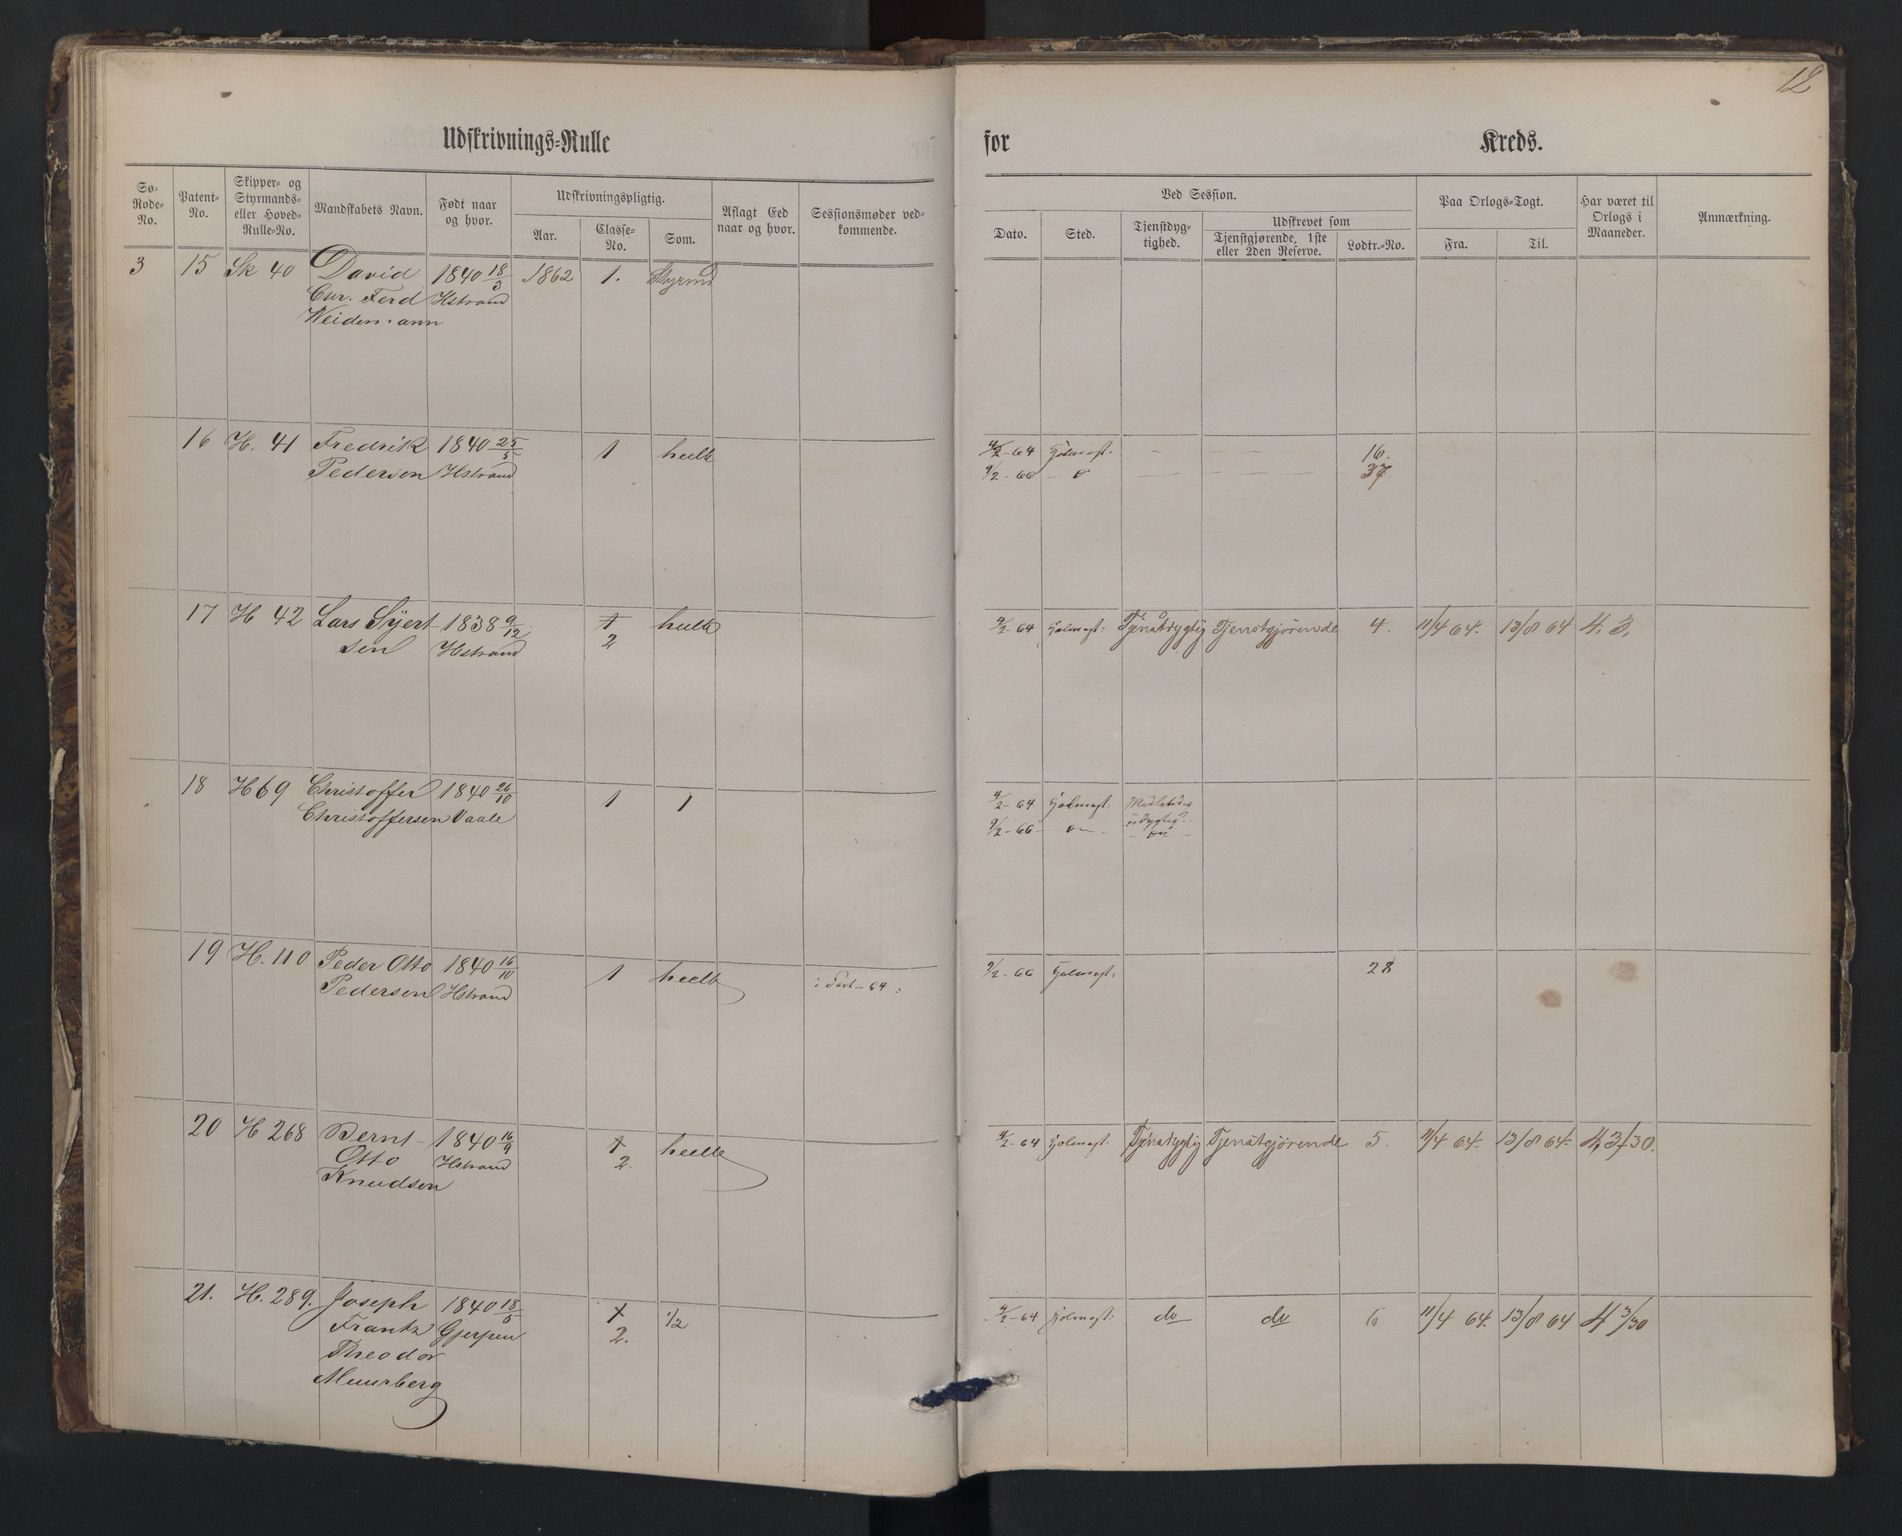 12
Udskrivnings-Rulle for Kreds.
Sø-Rode-No. Patent-No. Skipper- og Styrmands- eller Hoved-Rulle-No. Mandskabets Navn. Født naar og hvor. Udskrivningspligtig. Aflagt Eed naar og hvor. Sessionsmøder vedkommende.
Aar. Classe-No. Som.
Ved Session. Paa Orlogs-Togt. Har været til Orlogs i Maaneder. Anmærkning.
Dato. Sted. Tjenstdygtighed. Udskrevet som Tjenstgjørende, 1ste eller 2den Reserve. Lodtr.-No. Fra. Til.
3 15 Sk 40 David 1840 18/3 1862 1. Styrmd
Chr. Ferd Hstrand
Weidemann
16 H. 41 Fredrik 1840 25/5 1 heelt 4/2-64 Holmest. — — — 16.
Pedersen Hstrand 9/2-66 — o — — — 37.
17 H 42 Lars Sÿert- 1838 9/12 1 heelt 4/2-64 Holmest: Tjenstdygtig Tjenstgjørende 4. 11/4 64. 13/8 64 4, 3.
sen Hstrand 2
18 H 69 Christoffer 1840 26/10 1 1 4/2-64 Holmest:
Christoffersen Vaale 9/2-66 — on —
19 H. 110 Peder Otto 1840 16/10 1 heelt 9/2-66 Holmest: 28
Pedersen Hstrand
20 H 268 Bernt 1840 16/9 1 heelt 4/2-64 Holmest: Tjenstdygtig Tjenstgjørende 5. 11/4 64. 13/8 64. 4, 3/30.
Otto Hstrand 2.
Knudsen
21. H. 289. Joseph 1840 18/5 1 1/2 4/2-64 Holmest: do do 6 11/4 64. 13/8 64 4 3/30
Frantz Gjerpen 2.
Theodor
Muurberg